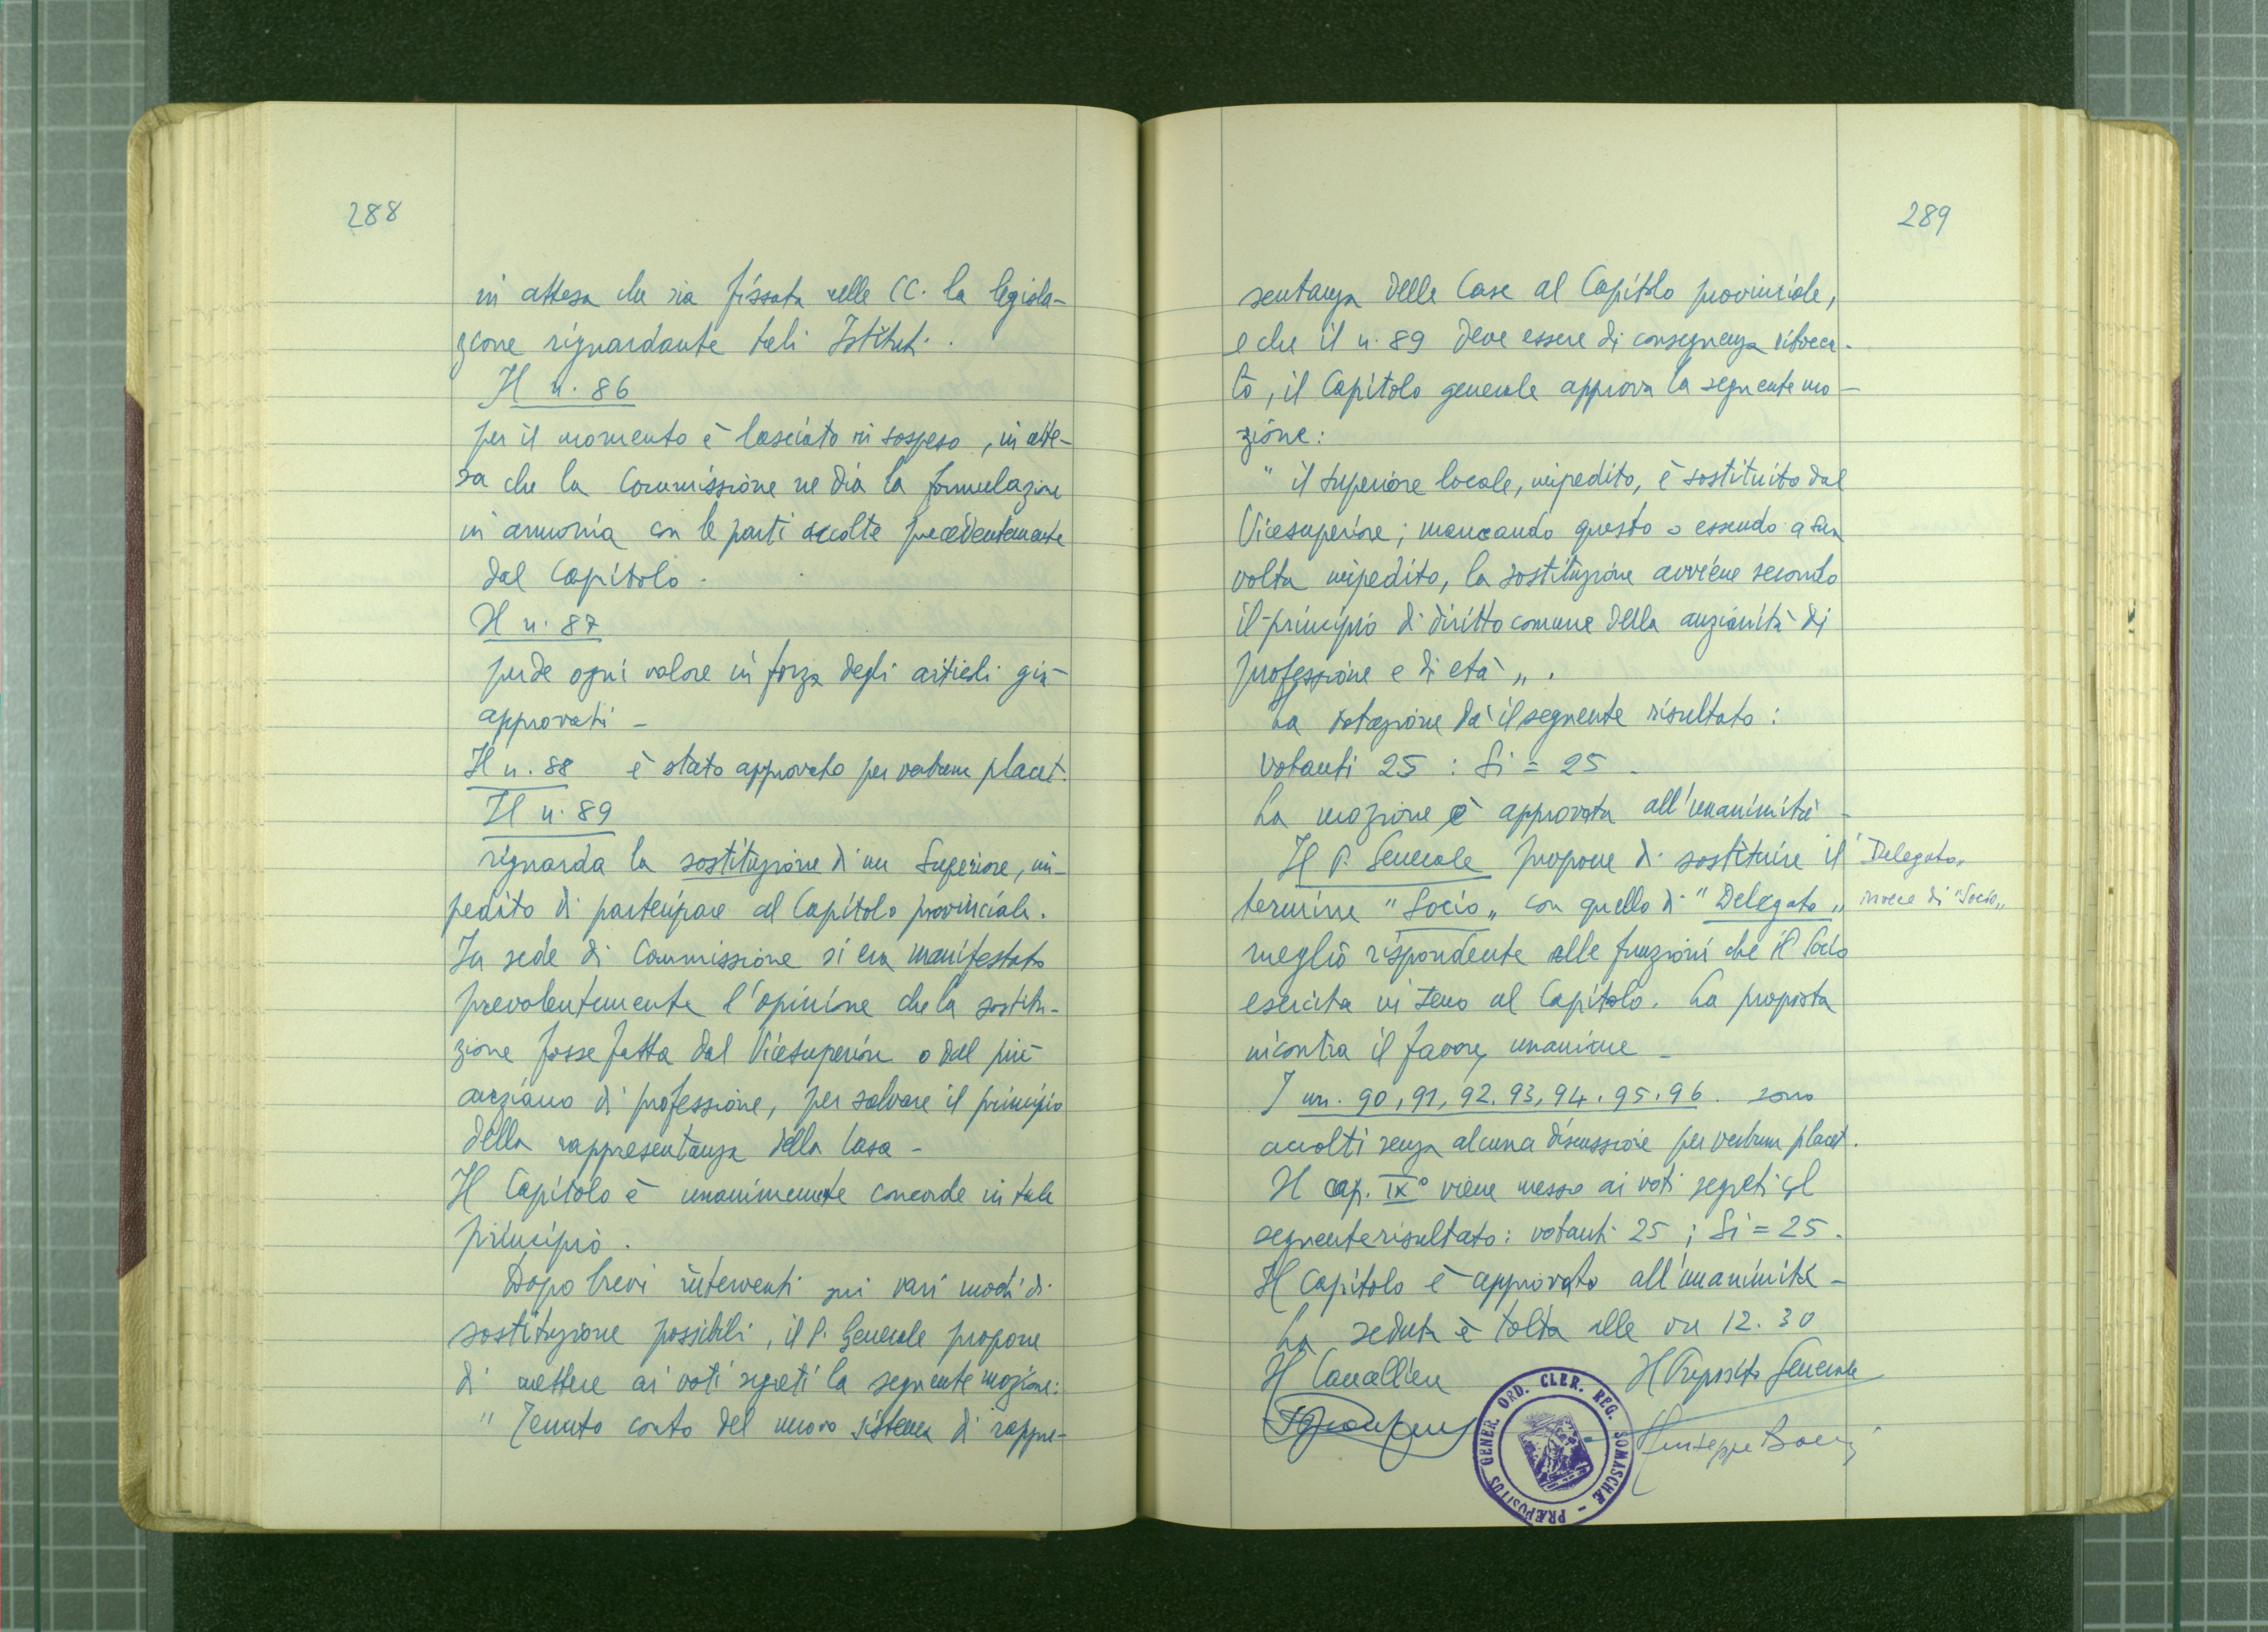 288
in attesa che sia fissata nelle CC. la legisla-
zione riguardante tali Istituti.
Il n. 86
per il momento è lasciato in sospeso, in atte-
sa che la Commissione ne dia la formulazione
in armonia con le parti accolte precedentemente
dal Capitolo.
Il n. 87
perde ogni valore in forza degli articoli già
approvati -
Il n. 88 è stato approvato per verbum placet.
Il n. 89
riguarda la sostituzione di un Superiore, im-
pedito di partecipare al Capitolo provinciale.
In sede di Commissione si era manifestata
prevalentemente l'opinione che la sostitu-
zione fosse fatta dal Vicesuperiore o dal più
anziano di professione, per salvare il principio
della rappresentanza della Casa -
Il Capitolo è unanimemente concorde in tale
principio.
Dopo brevi interventi sui vari modi di
sostituzione possibili, il P. Generale propone
di mettere ai voti segreti la seguente mozione:
" Tenuto conto del nuovo sistema di rappre-
289
sentanza delle Case al Capitolo provinciale,
e che il n. 89 deve essere di conseguenza ritocca-
to, il Capitolo generale approva la seguente mo-
zione:
" il Superiore locale, impedito, è sostituito dal
Vicesuperiore; mancando questo o essendo a sua
volta impedito, la sostituzione avviene secondo
il principio di diritto comune della anzianità di
professione e di età ".
La votazione dà il seguente risultato:
Votanti 25 : Si = 25.
La mozione è approvata all'unanimità -
Il P. Generale propone di sostituire il
termine "Socio" con quello di "Delegato"
meglio rispondente alle funzioni che il Socio
esercita in seno al Capitolo. La proposta
incontra il favore unanime -
I nn. 90, 91, 92. 93, 94. 95. 96. sono
accolti senza alcuna discussione per verbum placet.
Il cap. IX° viene messo ai voti segreti col
seguente risultato: votanti 25 ; Si = 25.
Il Capitolo è approvato all'unanimità -
La seduta è tolta alle ore 12.30
Delegato"
invece di "Socio"
Il Cancelliere
Il Preposito Generale
Giuseppe
PRÆPOSITUS GENER. ORD. CLER. REG. SOMASCHÆ